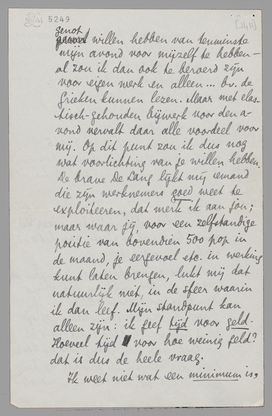 5249
genot willen hebben van tenminste
mijn avond voor mijzelf te hebben -
al zou ik dan ook te beroerd zijn
voor eigen werk en alleen... bv. de
Grieken kunnen lezen. Maar met elas-
tisch-gehouden bijwerk voor den a-
vond vervalt daar alle voordeel voor
mij. Op dit punt zou ik dus nog
wat voorlichting van je willen hebben.
De brave De Lang lijkt mij iemand
die zijn werknemers goed weet te
exploiteeren, dat merk ik aan jou;
maar waar jij, voor een zelfstandige
positie van bovendien 500 pop in
de maand, je eergevoel etc. in werking
kunt laten brengen, lukt mij dat
natuurlijk niet, in de sfeer waarin
ik dan leef. Mijn standpunt kan
alleen zijn: ik geef tijd voor geld.
Hoeveel tijd voor hoe weinig geld?
dat is dus de heele vraag.
Ik weet niet wat een minimum is,